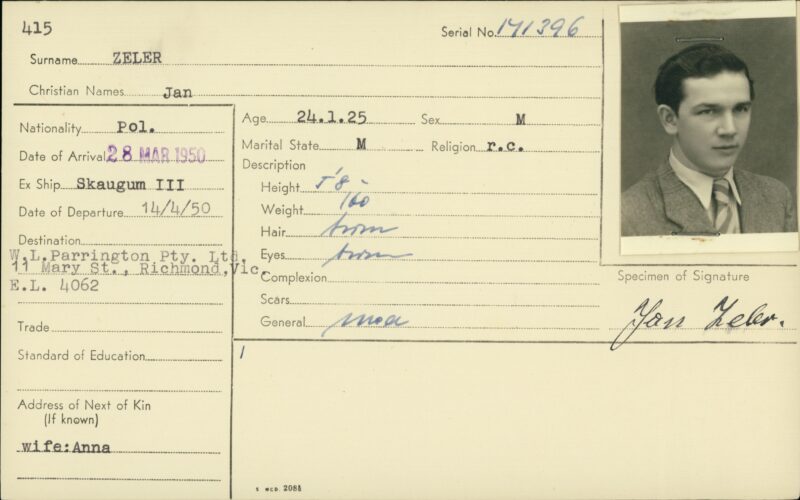 415
Serial No. 171396
Surname ZELER
Christian Names Jan
Nationality Pol.
Date of Arrival 28 MAR 1950
Ex Ship Skaugum III
Date of Departure 14/4/50
Destination
W.L.Parrington Pty. Ltd.
11 Mary St., Richmond,Vic.
E.L. 4062
Trade
Standard of Education
Address of Next of Kin
(If known)
wife:Anna
Age 24.1.25 Sex M
Marital State M Religion r.c.
Description
Height 5'8-
Weight 160
Hair brown
Eyes brown
Complexion
Scars
General med
Specimen of Signature
Jan Zeler.